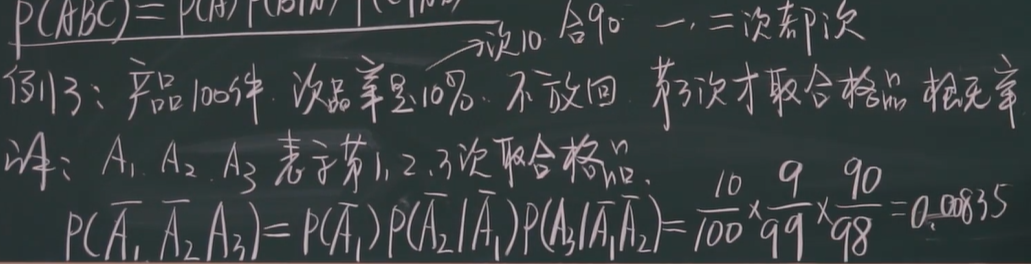 P(ABC) = P(A) P(B|A) P(C|AB)
次10 合90 一, 二次都次
例3: 产品100件. 次品率是10%. 不放回 第3次才取合格品 概无率
详: A₁. A₂. A₃ 表示第1, 2, 3次取合格品.
P(A̅₁ A̅₂ A₃) = P(A̅₁) P(A̅₂|A̅₁) P(A₃|A̅₁A̅₂) = 10/100 × 9/99 × 90/98 = 0.00835